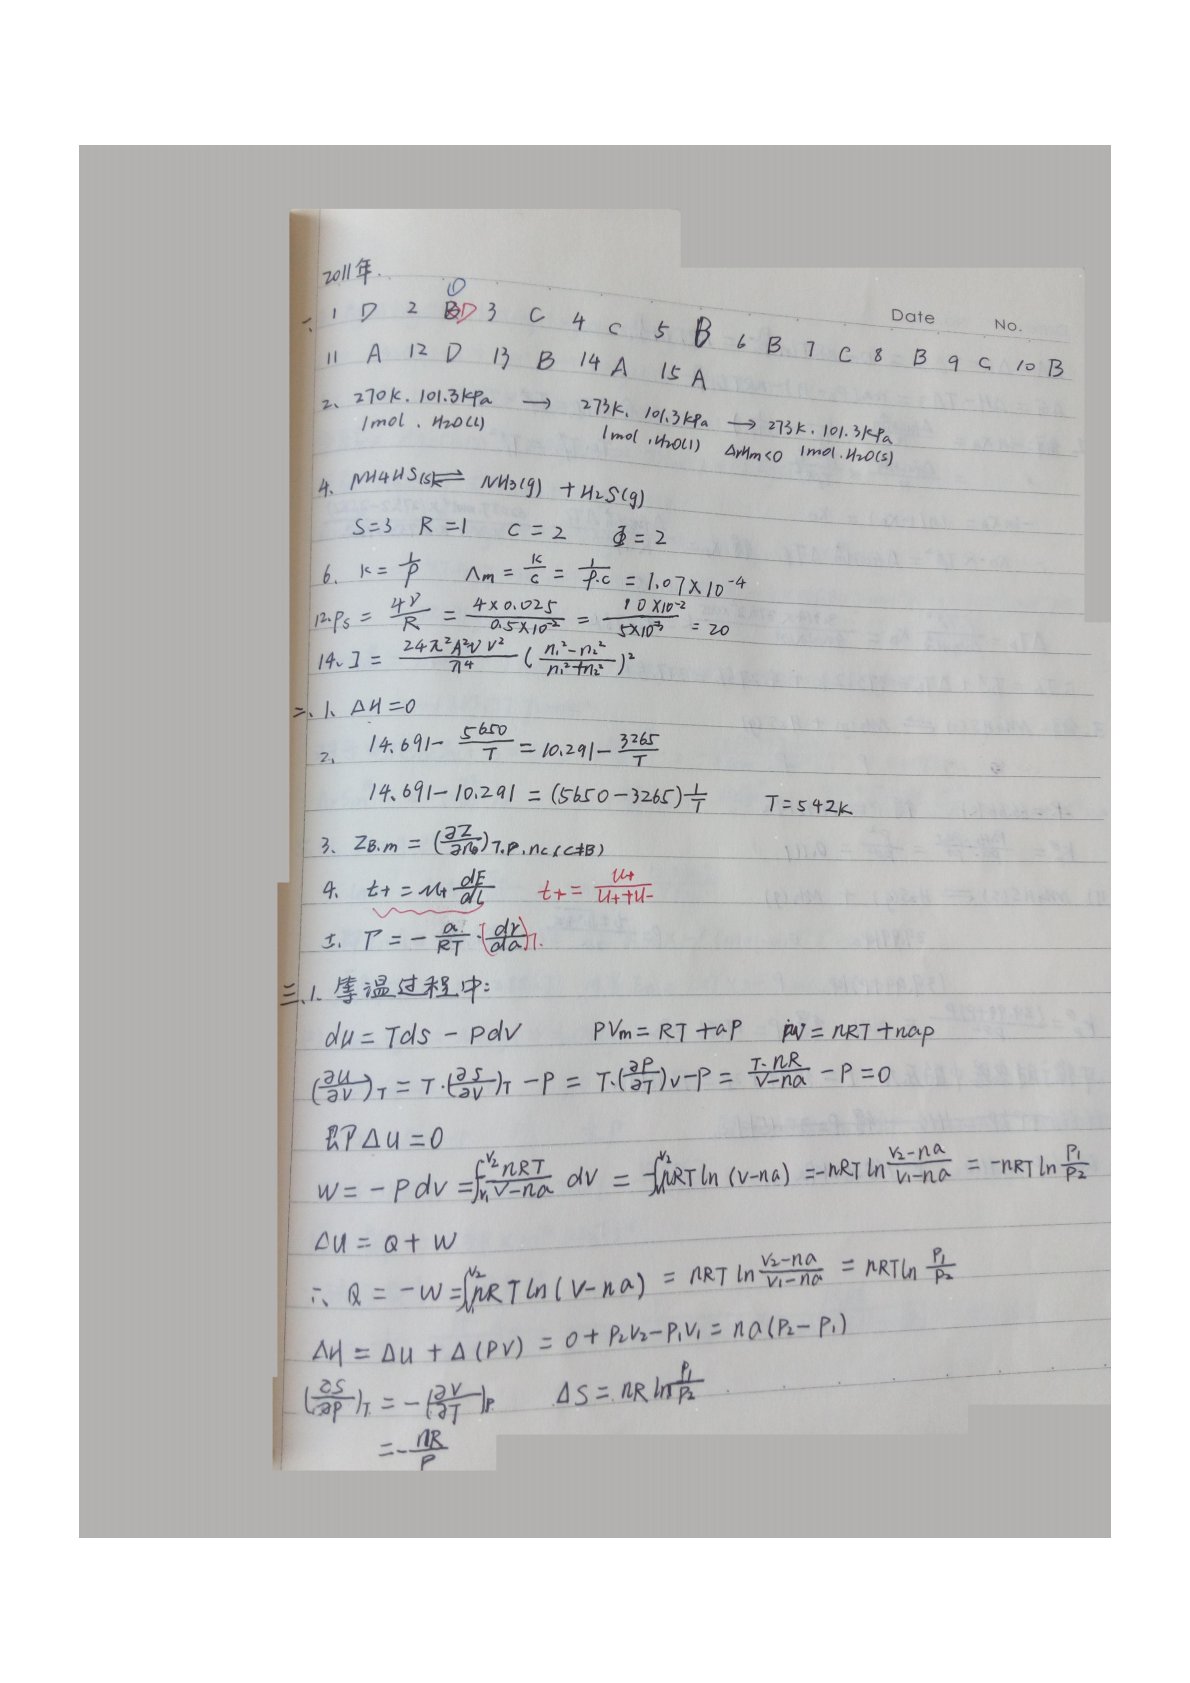 2011年.
Date No.
一、1 D 2 D 3 C 4 C 5 B 6 B 7 C 8 B 9 C 10 B
11 A 12 D 13 B 14 A 15 A
2、270K. 101.3kPa → 273K. 101.3kPa → 273K. 101.3kPa
1mol . H2O(l) 1mol .H2O(l) ΔrHm<0 1mol.H2O(s)
4. NH4HS(s) ⇌ NH3(g) + H2S(g)
S=3 R=1 C=2 Φ=2
6. K = 1/ρ Λm = K/C = 1/(ρ.C) = 1.07×10⁻⁴
12. Ps = 4γ/R = (4×0.025)/(0.5×10⁻²) = (10×10⁻²)/(5×10⁻³) = 20
14. I = (24π²A²ν V²)/λ⁴ ((n₁²-n₂²)/(n₁²+n₂²))²
二、1、ΔH=0
2. 14.691- 5650/T = 10.291- 3265/T
14.691-10.291 = (5650-3265) 1/T T=542K
3. ZB.m = (∂Z/∂nB)T.P.nc,(C≠B)
4. t+ = U+ dE/dL t+ = U+/(U++U-)
5. Γ = - a/RT · (dγ/da)T.
三、1. 等温过程中:
dU = Tds - PdV PVm = RT + aP PV = nRT + naP
(∂U/∂V)T = T·(∂S/∂V)T - P = T·(∂P/∂T)V - P = T·nR/(V-na) - P = 0
即 ΔU = 0
W = -PdV = ∫V₁V₂ nRT/(V-na) dV = -∫V₁V₂ nRT ln (V-na) = -nRT ln (V2-na)/(V1-na) = -nRT ln P1/P2
ΔU = Q + W
∴ Q = -W = ∫V₁V₂ nRT ln (V-na) = nRT ln (V2-na)/(V1-na) = nRT ln P1/P2
ΔH = ΔU + Δ(PV) = 0 + P2V2 - P1V1 = na(P2-P1)
(∂S/∂P)T = -(∂V/∂T)P ΔS = nR ln P1/P2
= - nR/P